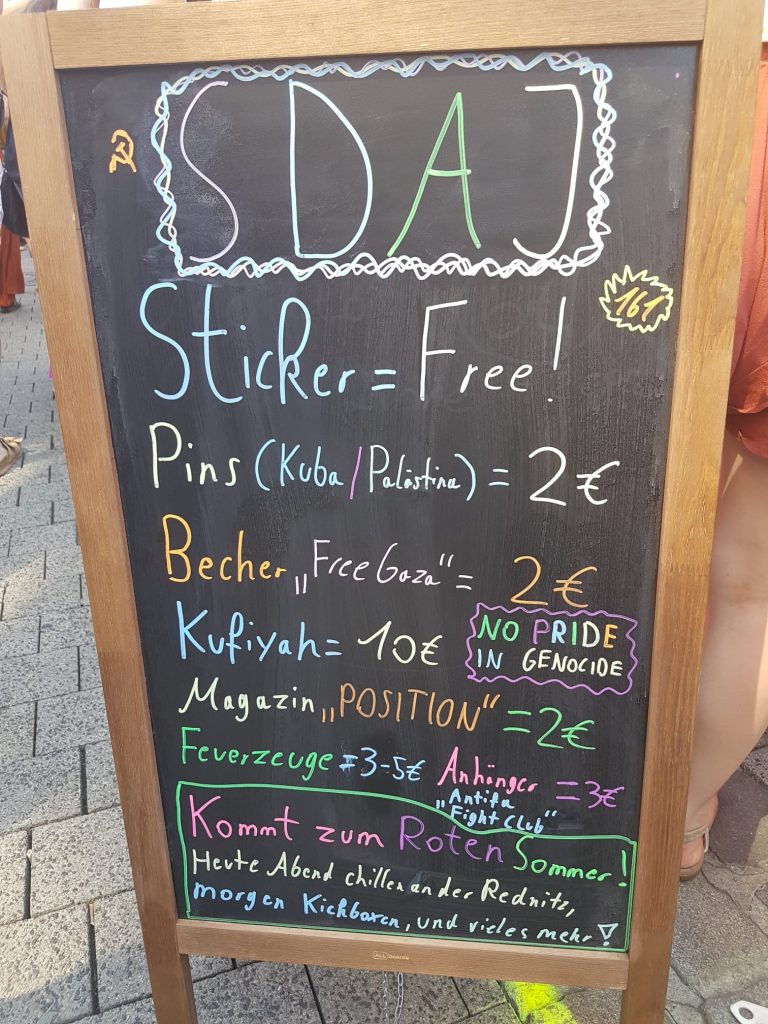 SDAJ
161
Sticker = Free!
Pins (Kuba/Palästina) = 2€
Becher „Free Gaza“ = 2€
Kufiyah = 10€
NO PRIDE
IN GENOCIDE
Magazin „POSITION“ = 2€
Feuerzeuge = 3-5€
Anhänger = 3€
„Antifa
Fight Club“
Kommt zum Roten Sommer!
Heute Abend chillen an der Rednitz,
morgen Kickboxen, und vieles mehr!
ALLboards